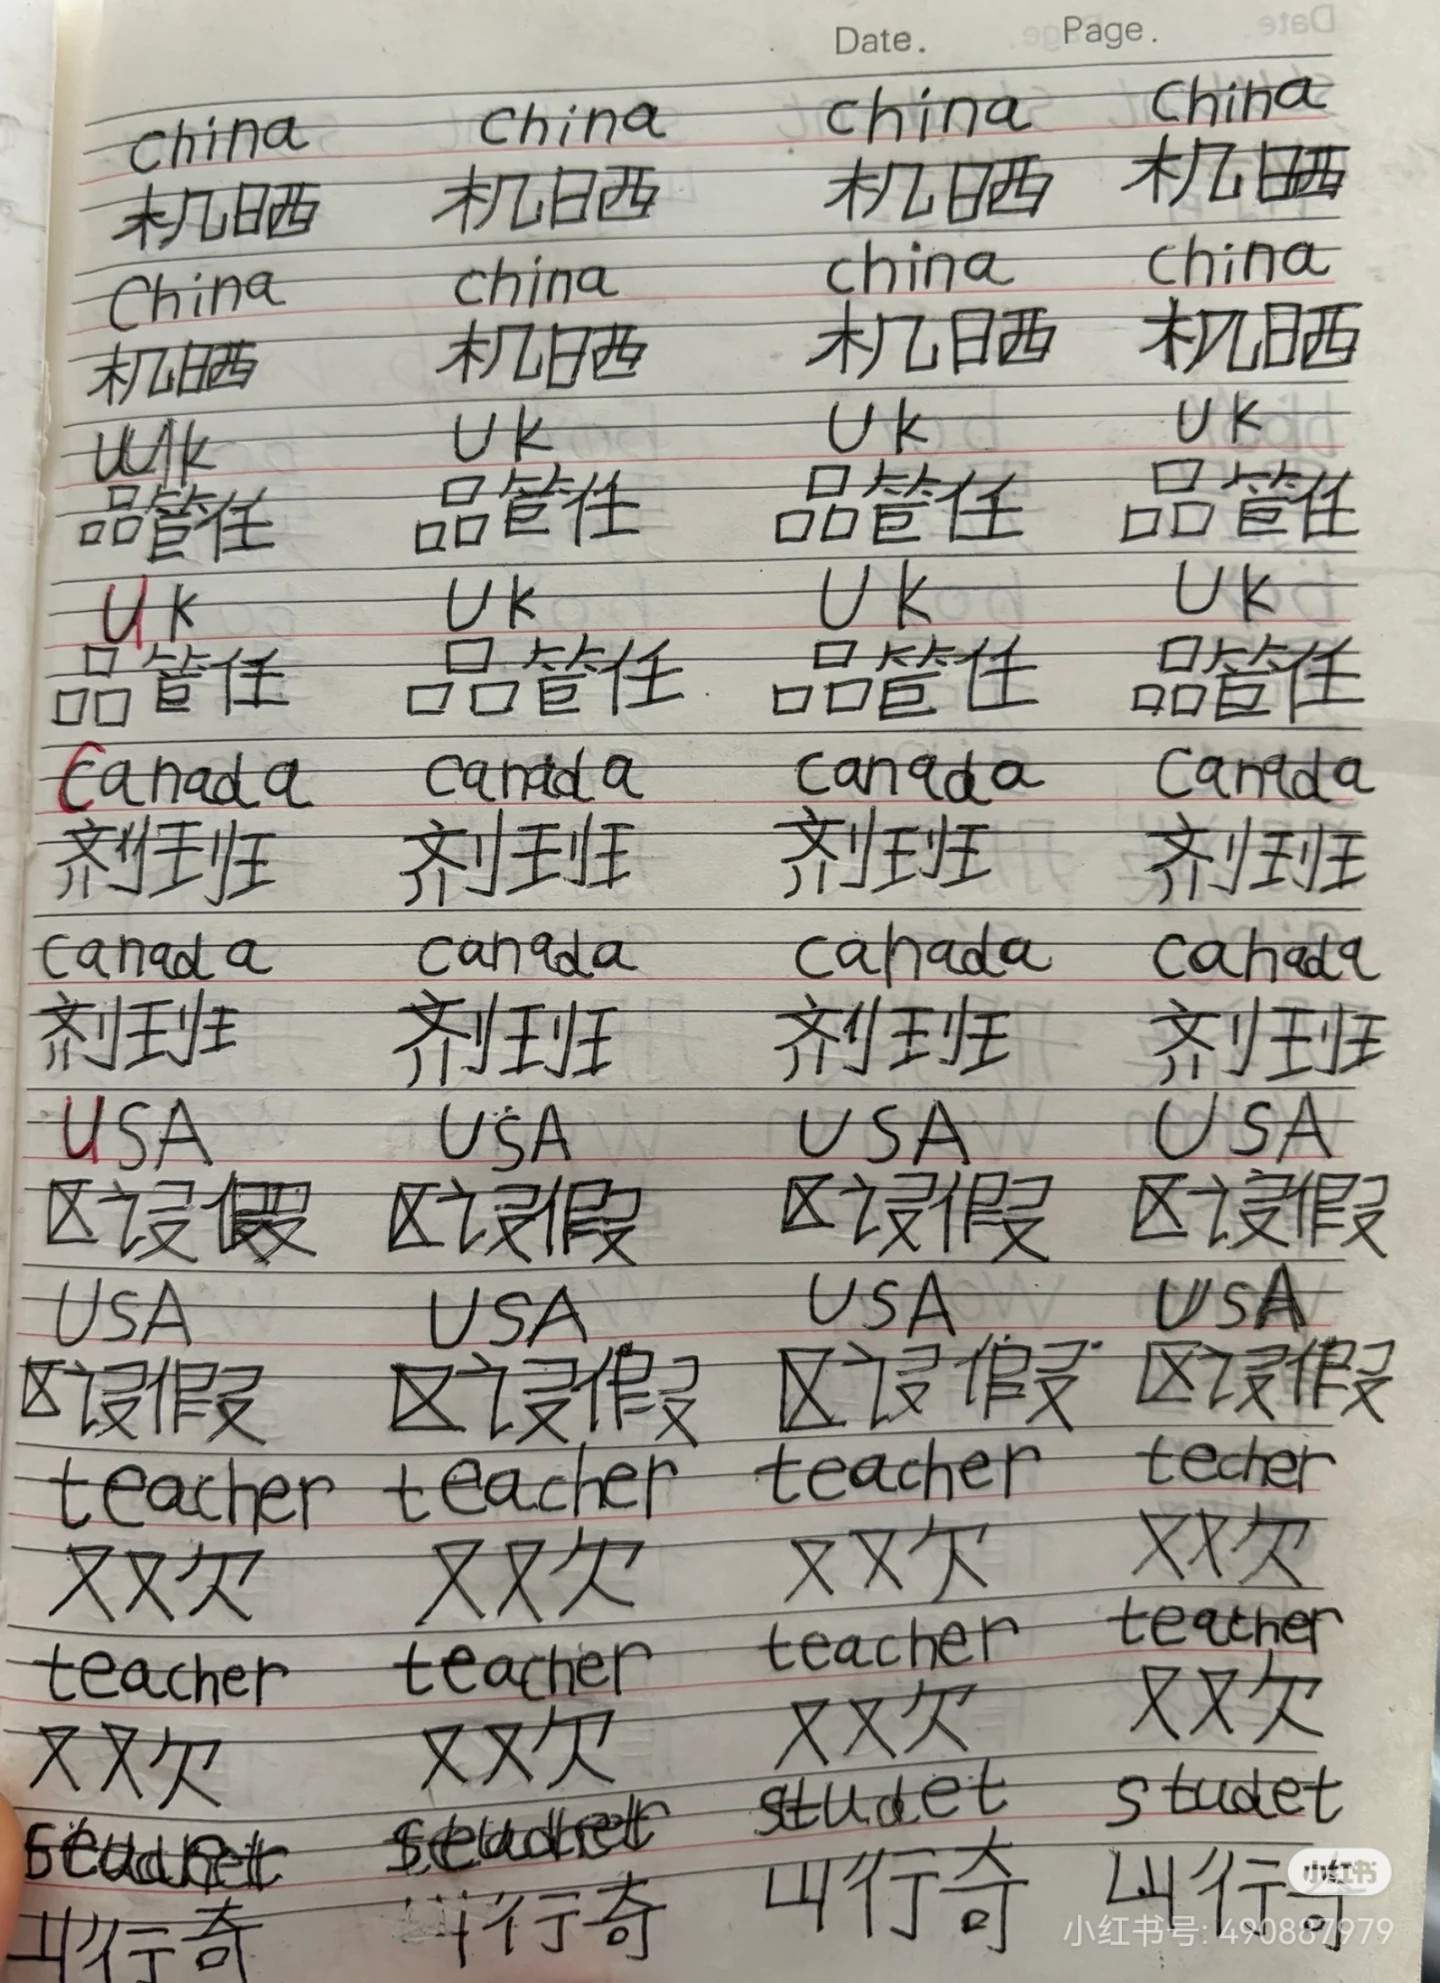 Date. Page.
china china china China
机晒 机晒 机晒 机晒
China china china china
机晒 机晒 机晒 机晒
Uk Uk Uk
品管任 品管任 品管任 品管任
Uk Uk Uk Uk
品管任 品管任 品管任 品管任
Canada canada canada Canada
剂班 剂班 剂班 剂班
canada canada canada canada
剂班 剂班 剂班 剂班
USA USA USA USA
区设假 区设假 区设假 区设假
USA USA USA USA
区设假 区设假 区设假 区设假
teacher teacher teacher techer
双欠 双欠 双欠 双欠
teacher teacher teacher teacher
双欠 双欠 双欠 双欠
studet studet
行奇 行奇 行奇 行
小红书
小红书号: 490887979